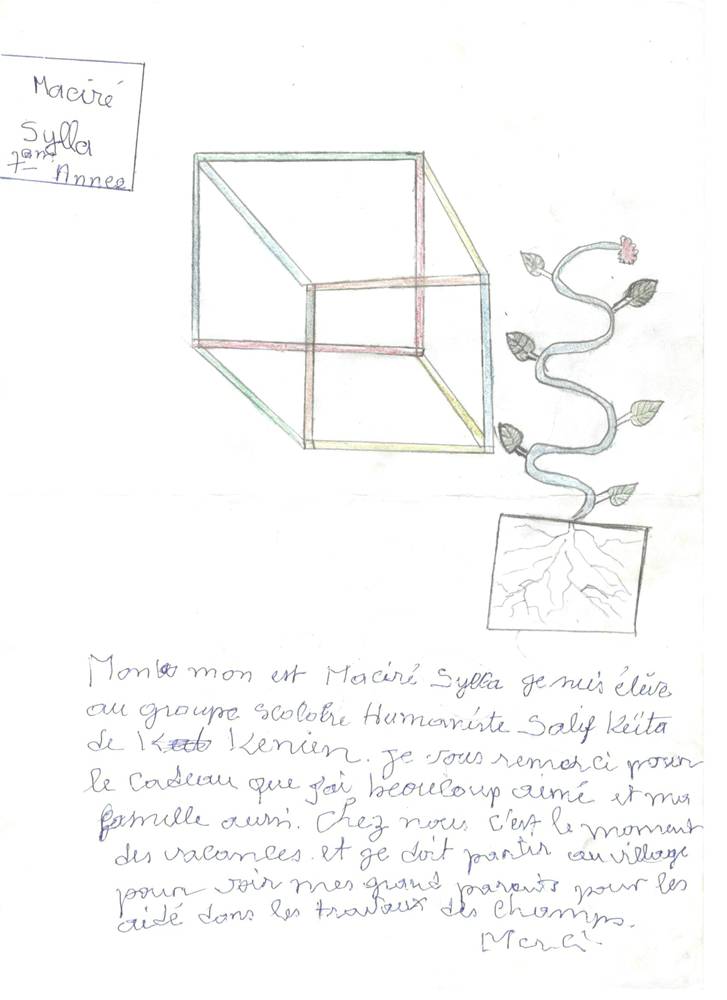 Maciré
Sylla
7em Annee
Mon mon est Maciré Sylla je suis élève
au groupe scolobre Humaniste Salif Keïta
de Kenien. je vous remerci pour
le cadeau que j'ai beaucoup aimé et ma
famille aussi. Chez nous c'est le moment
des vacances. et je doit partir au village
pour voir mes grand parents pour les
aidé dans les travaux des champs.
Merci.